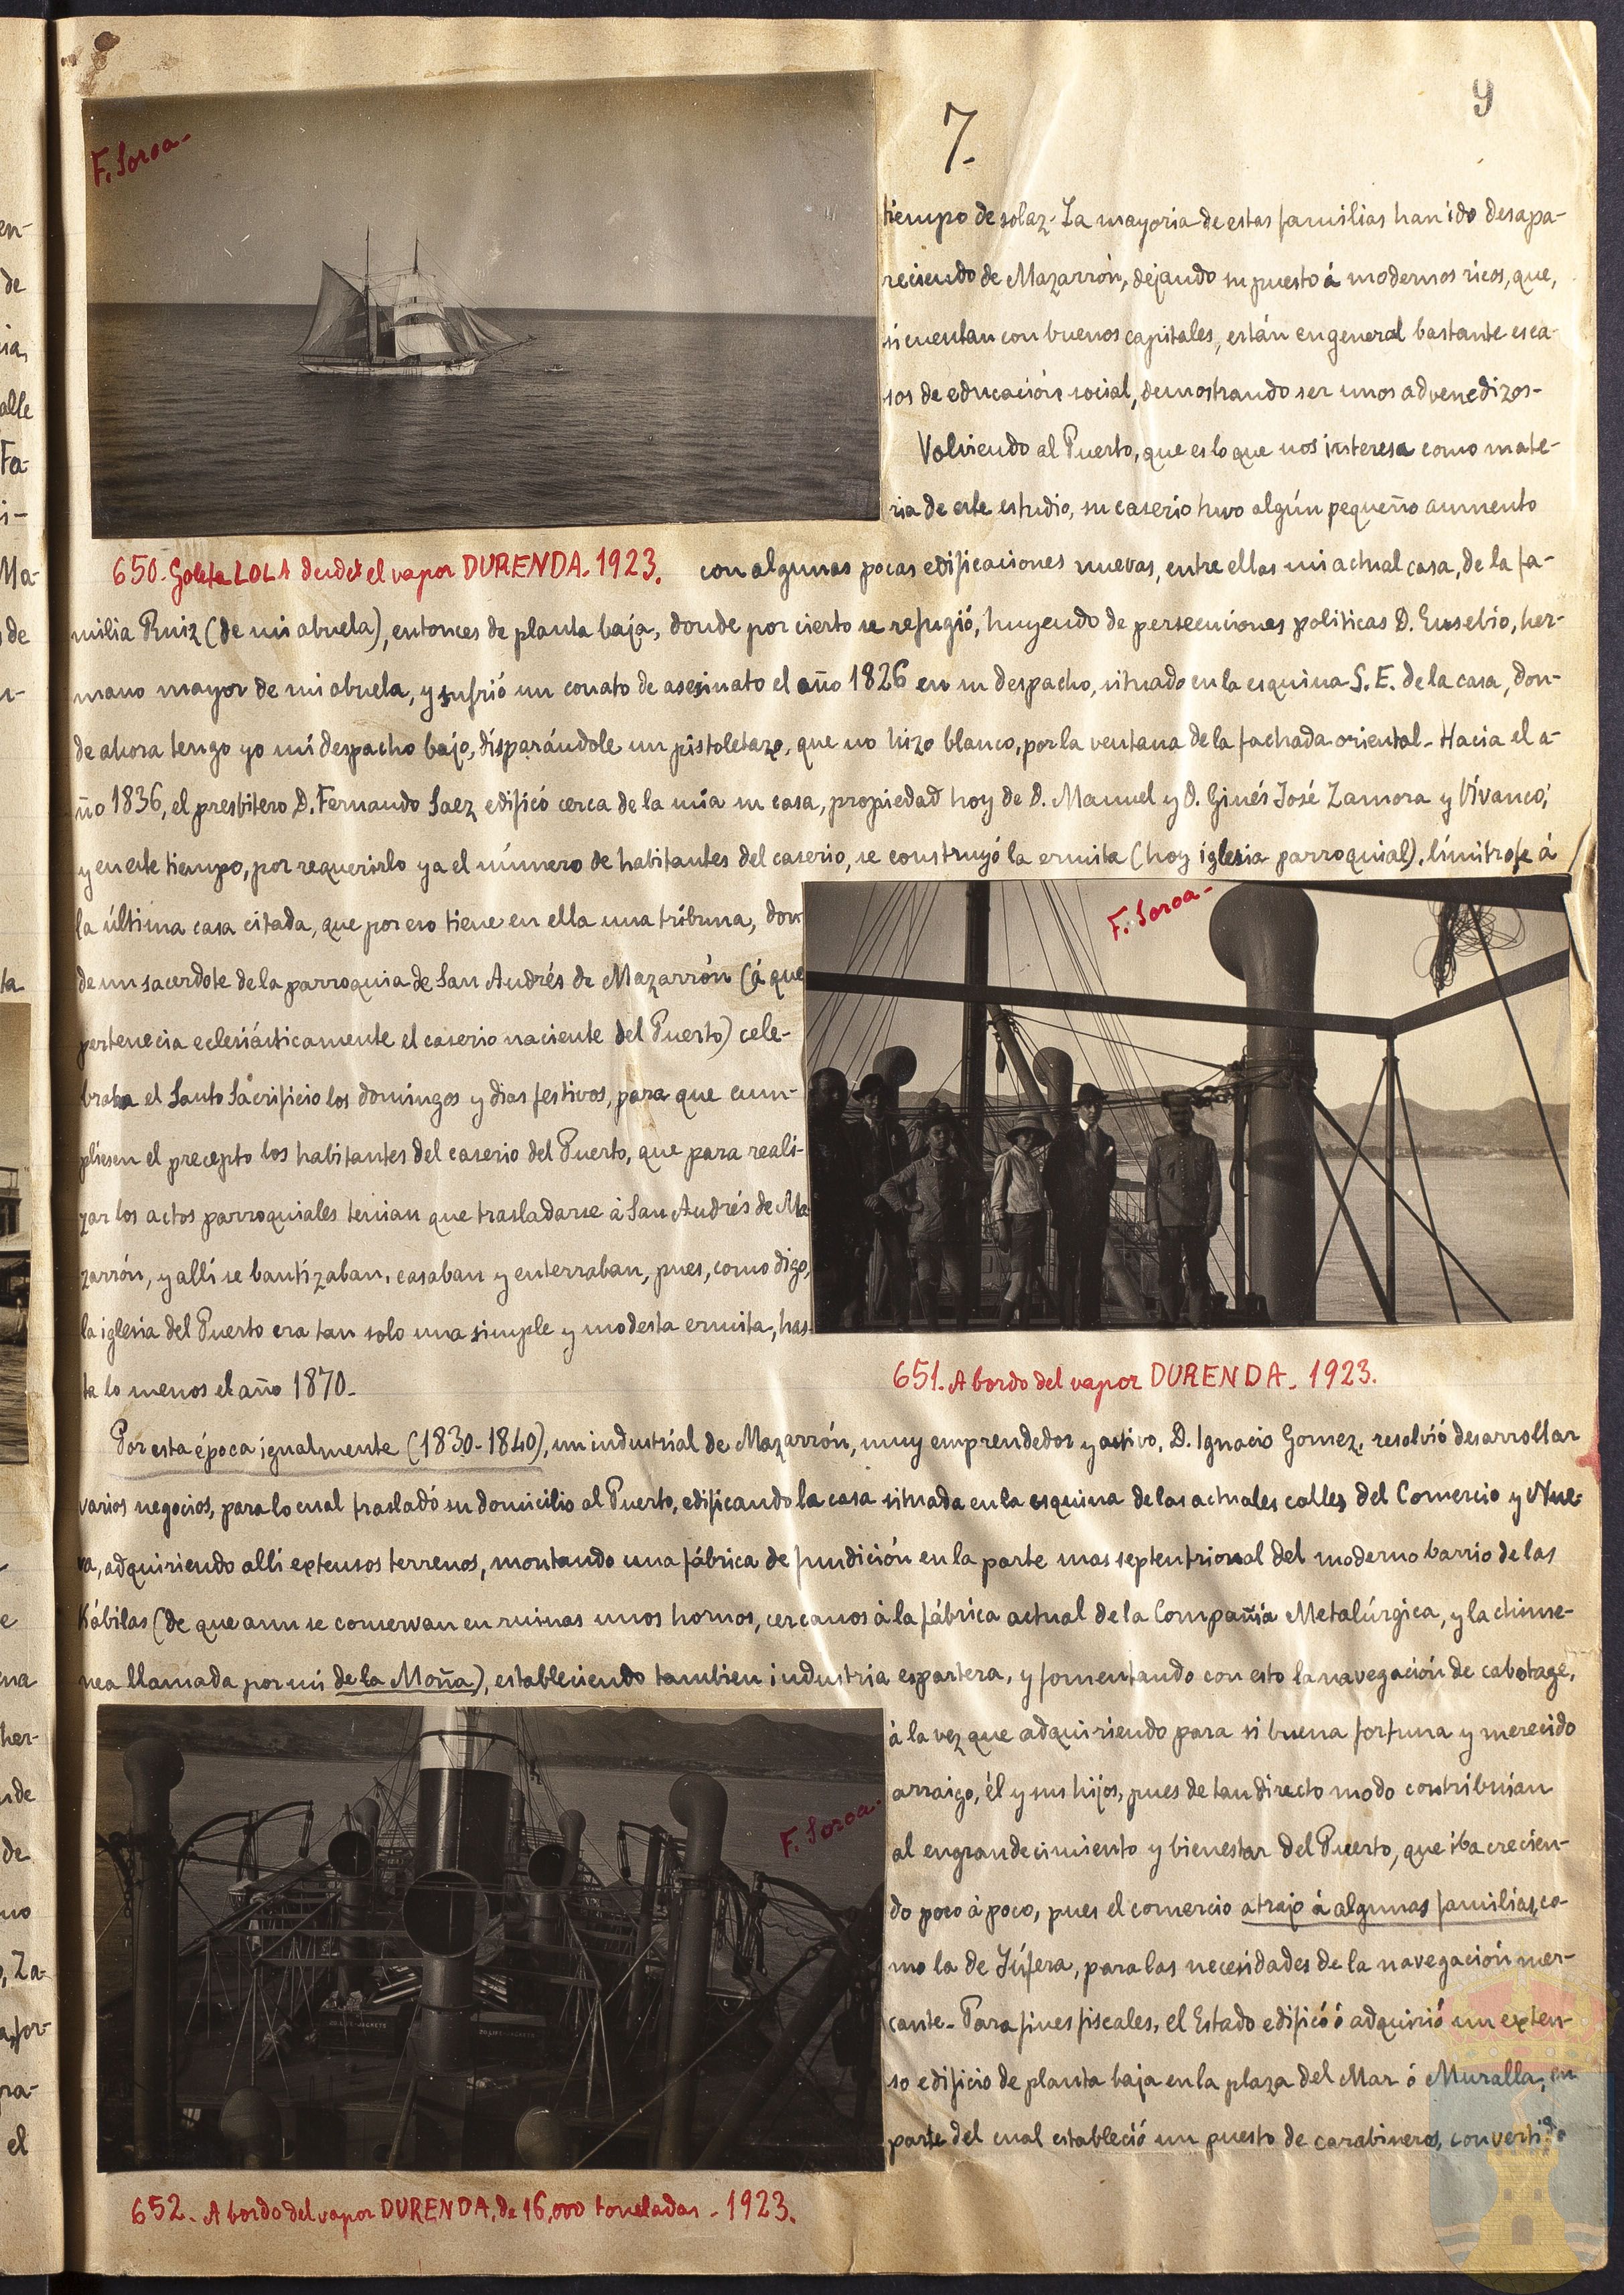 9
7.
F. Soroa-
tiempo de solaz- La mayoria de estas familias han ido desapa-
reciendo de Mazarrón, dejando su puesto á modernos ricos, que,
si cuentan con buenos capitales, están en general bastante esca-
sos de educación social, demostrando ser unos advenedizos-
Volviendo al Puerto, que es lo que nos interesa como mate-
ria de este estudio, su caserio tuvo algún pequeño aumento
650. Goleta LOLA desde el vapor DURENDA. 1923.
con algunas pocas edificaciones nuevas, entre ellas mi actual casa, de la fa-
milia Ruiz (de mi abuela), entonces de planta baja, donde por cierto se refugió, huyendo de persecuciones politicas D. Eusebio, her-
mano mayor de mi abuela, y sufrió un conato de asesinato el año 1826 en su despacho, situado en la esquina S. E. de la casa, don-
de ahora tengo yo mi despacho bajo, disparándole un pistoletazo, que no hizo blanco, por la ventana de la fachada oriental- Hacia el a-
ño 1836, el presbitero D. Fernando Saez edificó cerca de la mia su casa, propiedad hoy de D. Manuel y D. Ginés José Zamora y Vivanco;
y en este tiempo, por requerirlo ya el número de habitantes del caserio, se construyó la ermita (hoy iglesia parroquial), limitrofe á
la última casa citada, que por eso tiene en ella una tribuna, don-
de un sacerdote de la parroquia de San Andrés de Mazarrón (á que
pertenecia eclesiásticamente el caserio naciente del Puerto) cele-
braba el Santo Sacrificio los domingos y dias festivos, para que cum-
pliesen el precepto los habitantes del caserio del Puerto, que para reali-
zar los actos parroquiales tenian que trasladarse á San Andrés de Ma
zarrón, y allí se bautizaban, casaban y enterraban, pues, como digo,
la iglesia del Puerto era tan solo una simple y modesta ermita, has-
ta lo menos el año 1870-
F. Soroa-
651. A bordo del vapor DURENDA. 1923.
Por esta época igualmente (1830-1840), un industrial de Mazarrón, muy emprendedor y activo, D. Ignacio Gomez, resolvió desarrollar
varios negocios, para lo cual trasladó su domicilio al Puerto, edificando la casa situada en la esquina de las actuales calles del Comercio y Nue-
va, adquiriendo allí extensos terrenos, montando una fábrica de fundición en la parte mas septentrional del moderno barrio de las
Kábilas (de que aun se conservan en ruinas unos hornos, cercanos á la fábrica actual de la Compañia Metalúrgica, y la chime-
nea llamada por mi de la Moña), estableciendo tambien industria espartera, y fomentando con esto la navegación de cabotage,
á la vez que adquiriendo para si buena fortuna y merecido
arraigo, él y sus hijos, pues de tan directo modo contribuian
al engrandecimiento y bienestar del Puerto, que iba crecien-
do poco á poco, pues el comercio atrajo á algunas familias, co-
mo la de Júfera, para las necesidades de la navegación mer-
cante- Para fines fiscales, el Estado edificó ó adquirió un exten-
so edificio de planta baja en la plaza del Mar ó Muralla, en
parte del cual estableció un puesto de carabineros, converti-do
F. Soroa-
652. A bordo del vapor DURENDA, de 16,000 toneladas - 1923.